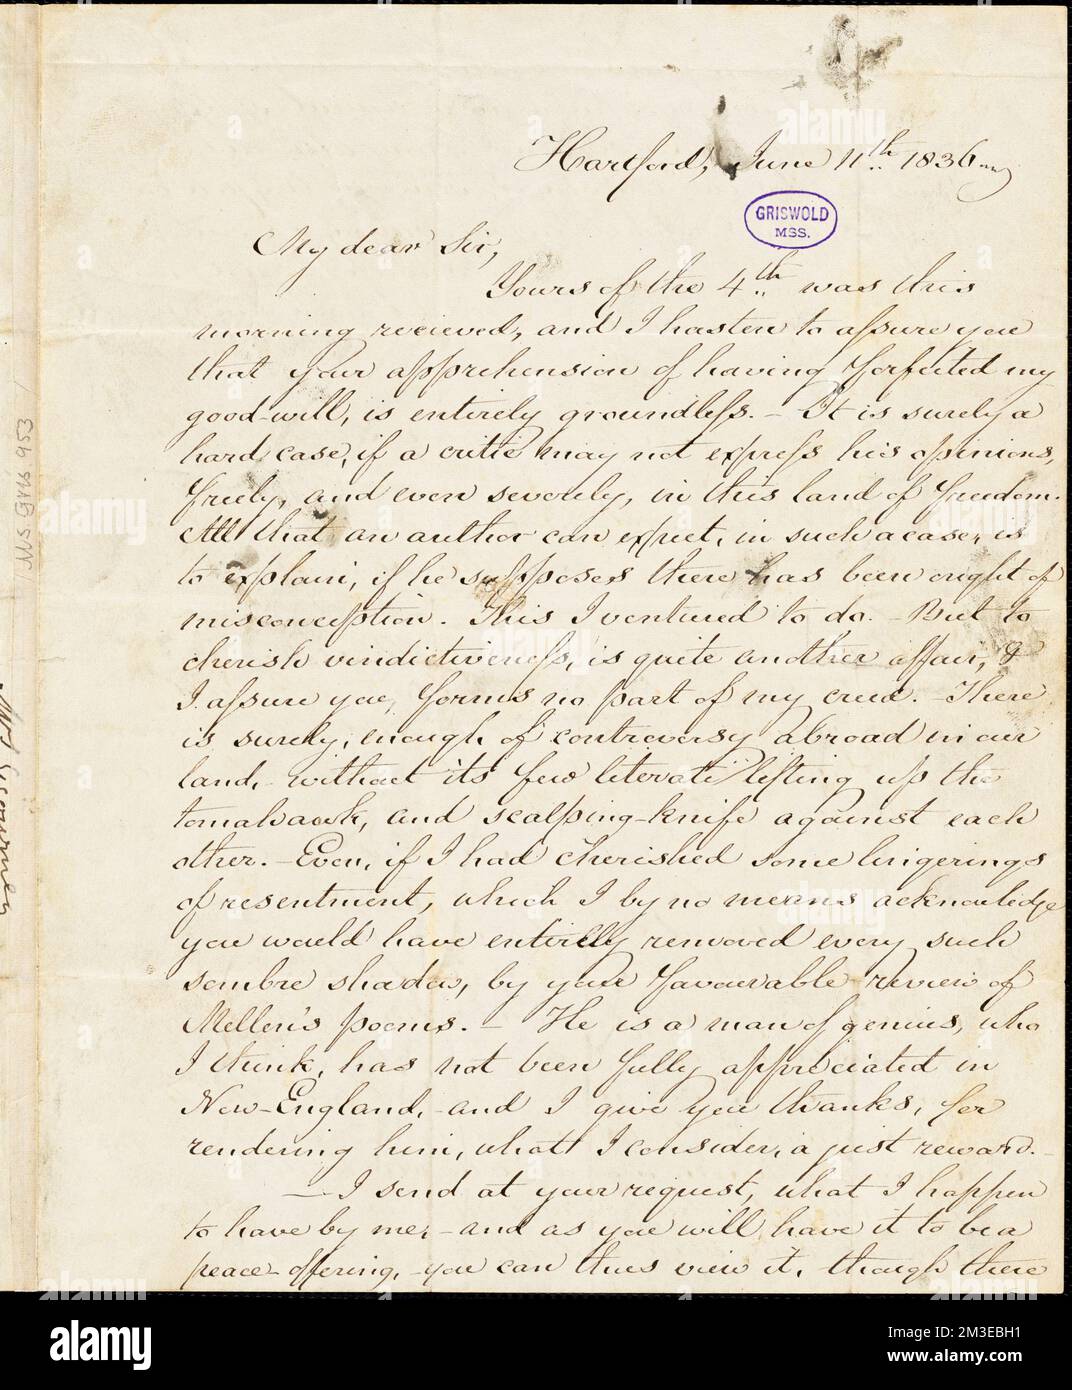 Hartford, June 11th 1836
GRISWOLD
MSS.
My dear Sir,
Yours of the 4th was this
morning recieved, and I hasten to assure you
that your apprehension of having forfeited my
good-will, is entirely groundless. - It is surely a
hard case, if a critic may not express his opinions,
freely, and even severely, in this land of freedom.
All that an author can expect, in such a case, is
to explain, if he supposes there has been ought of
misconception. This I ventured to do. - But to
cherish vindictiveness, is quite another affair, &
I assure you, forms no part of my creed. - There
is surely, enough of controversy abroad in our
land, - without its few literati lifting up the
tomahawk, and scalping-knife against each
other. - Even, if I had cherished some lingerings
of resentment, which I by no means acknowledge
you would have entirely removed every such
sombre shadow, by your favourable review of
Mellen's poems. - He is a man of genius, who
I think, has not been fully appreciated in
New-England, - and I give you thanks, for
rendering him, what I consider, a just reward. -
- I send at your request, what I happen
to have by me, - and as you will have it to be a
peace-offering, - you can thus view it, though there
MS Gris 953
alamy
Image ID: 2M3EBH1
www.alamy.com